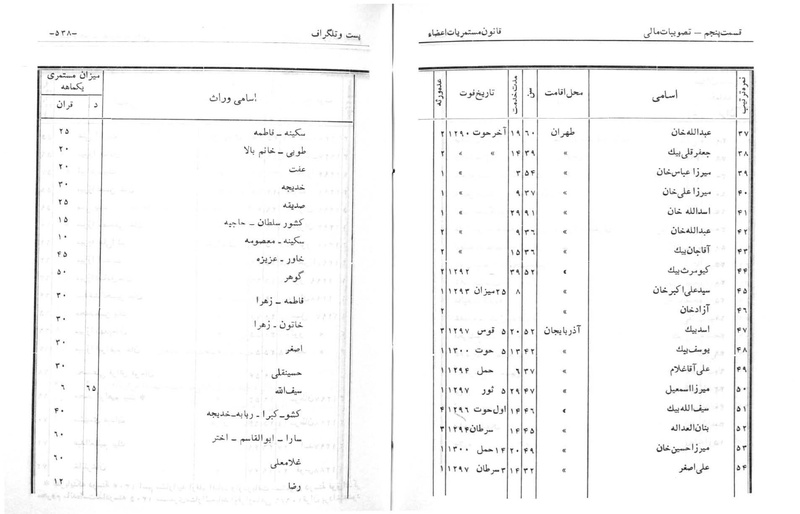 قسمت پنجم – تصویبات مالی
قانون مستمریات اعضاء
نمره ترتیب | اسامی | محل اقامت | سن | مدت خدمت | تاریخ فوت | عده ورثه
۳۷ عبدالله خان طهران ۶۰ ۱۹ آخر حوت ۱۲۹۰ ۲
۳۸ جعفر قلی بیك » ۳۹ ۱۴ » » ۲
۳۹ میرزا عباس خان » ۵۴ ۳ » ۱
۴۰ میرزا علی خان » ۳۷ ۹ » ۱
۴۱ اسدالله خان » ۹۱ ۲۹ » ۱
۴۲ عبدالله خان » ۳۶ ۹ » ۲
۴۳ آقاجان بیك » ۳۶ ۱۵ » ۲
۴۴ کیومرث بیك » ۵۲ ۳۹ ۱۲۹۲ ۲
۴۵ سید علی اکبر خان » ۸ ۲۵ میزان ۱۲۹۳ ۱
۴۶ آزاد خان » ۲
۴۷ اسد بیك آذربایجان ۵۲ ۲۰ ۵ قوس ۱۲۹۷ ۳
۴۸ یوسف بیك » ۴۲ ۱۳ ۵ حوت ۱۳۰۰ ۱
۴۹ علی آقا غلام » ۳۷ ۶ حمل ۱۲۹۴ ۱
۵۰ میرزا اسمعیل » ۴۷ ۲۹ ۵ ثور ۱۲۹۷ ۱
۵۱ سیف الله بیك » ۴۶ ۱۴ اول حوت ۱۲۹۶ ۴
۵۲ بنان العداله » ۴۵ ۱۴ سرطان ۱۲۹۴ ۳
۵۳ میرزا حسین خان » ۴۹ ۲۰ ۱۴ حمل ۱۳۰۰ ۱
۵۴ علی اصغر » ۳۲ ۱۴ ۳ سرطان ۱۲۹۷ ۱
پست و تلگراف
–۵۳۸–
اسامی وراث | میزان مستمری یکماهه
د | قران
سکینه ـ فاطمه ۲۵
طوبی ـ خانم بالا ۲۰
عفت ۲۰
خدیجه ۳۰
صدیقه ۲۵
کشور سلطان ـ حاجیه ۱۵
سکینه ـ معصومه ۱۰
خاور ـ عزیزه ۴۵
گوهر ۵۰
فاطمه ـ زهرا ۳۰
خاتون ـ زهرا ۳۰
اصغر ۳۰
حسینقلی ۳۰
سیف الله ۶۵ ۶
کشور ـ کبرا ـ ربابه ـ خدیجه ۴۰
سارا ـ ابوالقاسم ـ اختر ۶۰
غلامعلی ۶۰
رضا ۱۲